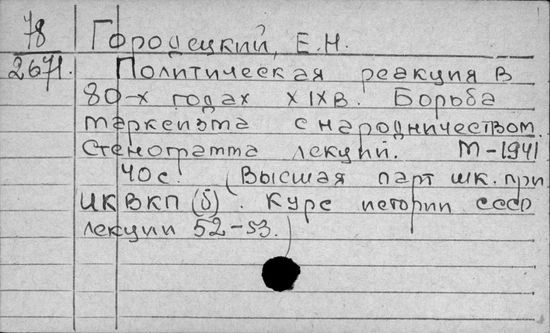 78
2671.
Городецкий, Е.Н.
Политическая реакция в
80-х годах XIXв. Борьба
марксизма с народничеством.
Стенограмма лекций. М-1941
40с. (Высшая парт шк. при
ЦК ВКП(б). Курс истории СССР
лекции 52-53.)